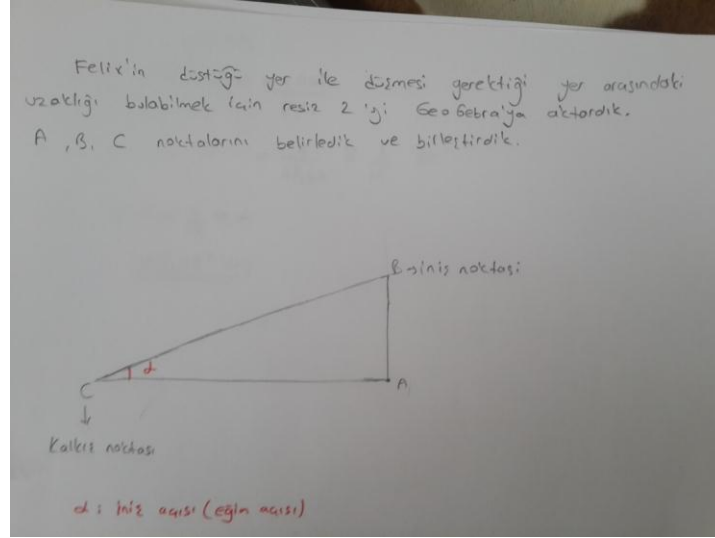 Felix'in düştüğü yer ile düşmesi gerektiği yer arasındaki
uzaklığı bulabilmek için resim 2'yi GeoGebra'ya aktardık.
A, B, C noktalarını belirledik ve birleştirdik.
B → iniş noktası
α
C
A
↓
Kalkış noktası
α : iniş açısı (eğim açısı)